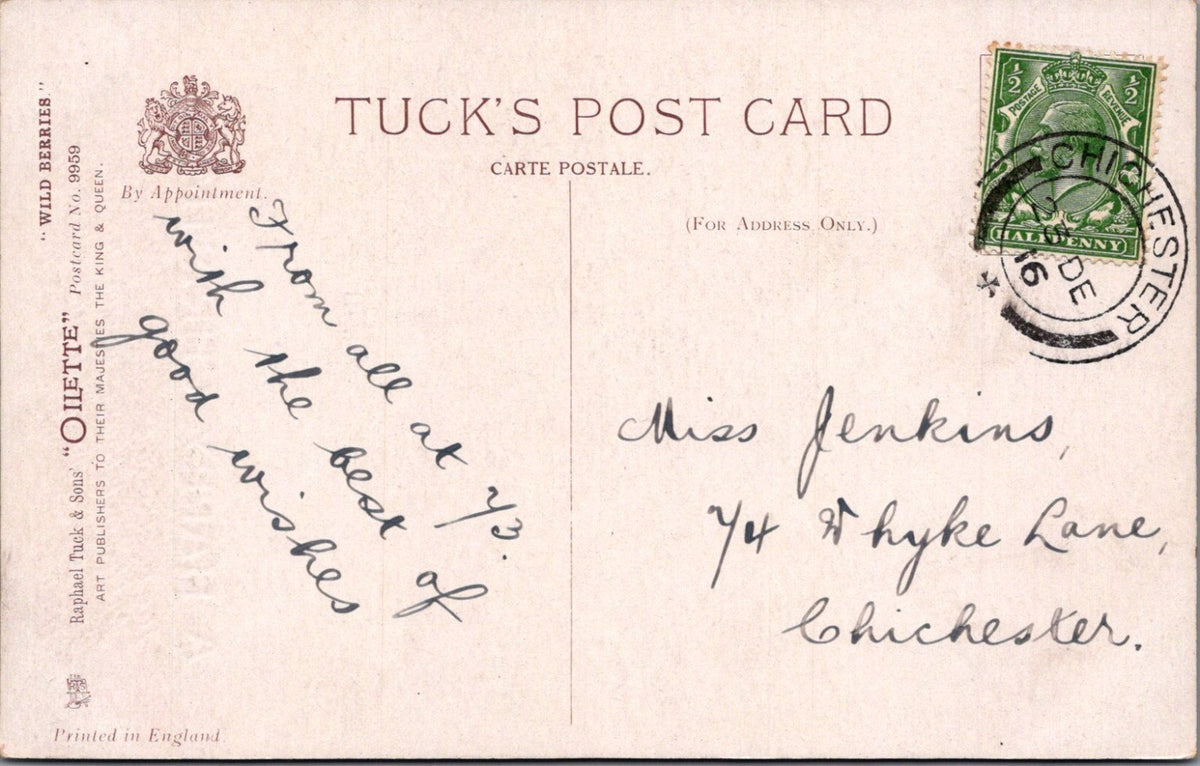 "WILD BERRIES."
Raphael Tuck & Sons' "OILETTE" Postcard No. 9959
ART PUBLISHERS TO THEIR MAJESTIES THE KING & QUEEN.
By Appointment.
TUCK'S POST CARD
CARTE POSTALE.
(FOR ADDRESS ONLY.)
½ ½
POSTAGE REVENUE
HALFPENNY
CHICHESTER
DE
16
From all at 73.
with the best of
good wishes
Miss Jenkins,
74 Whyke Lane,
Chichester.
Printed in England